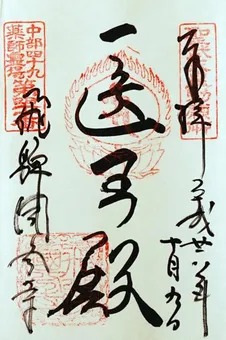 奉拝
平成廿八年
十月九日
医王殿
中部四十九
薬師霊場第
飛騨國分寺